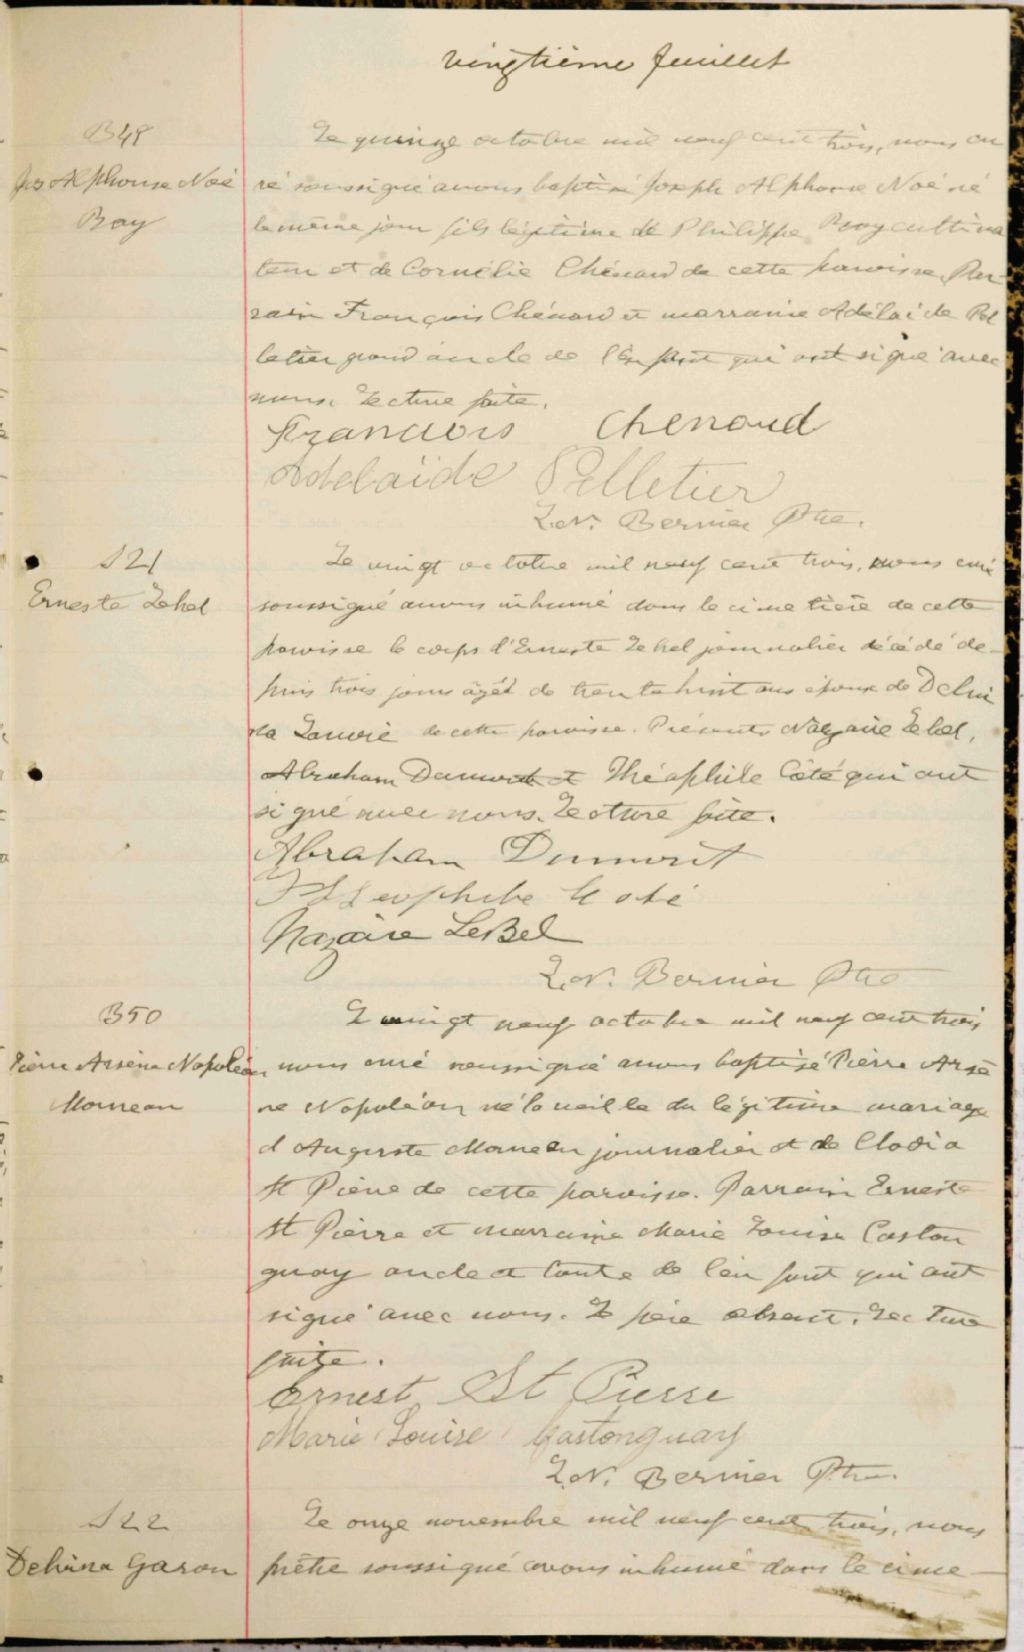 vingtième feuillet
B49
Jos Alphonse Noé
Roy
Le quinze octobre mil neuf cent trois, nous cu
ré soussigné avons baptisé Joseph Alphonse Noé né
le même jour fils légitime de Philippe Roy cultiva
teur et de Cornélie Chénard de cette paroisse. Par
rain François Chénard et marraine Adélaide Pel
letier grand oncle de l'enfant qui ont signé avec
nous. Lecture faite.
Francois Chenard
Adelaide Pelletier
L.N. Bernier Ptre.
S21
Erneste Lebel
Le vingt octobre mil neuf cent trois, nous curé
soussigné avons inhumé dans le cimetière de cette
paroisse le corps d'Erneste Lebel journalier décédé de-
puis trois jours âgé de trente huit ans époux de
de cette paroisse. Présents Nazaire Lebel,
Abraham Dumont et Théophile Côté qui ont
signé avec nous. Lecture faite.
Abraham Dumont
Theophile Coté
Nazaire LeBel
L.N. Bernier Ptre
B50
Pierre Arsène Napoléon
Morneau
Le vingt neuf octobre mil neuf cent trois
nous curé soussigné avons baptisé Pierre Arsè
ne Napoléon né la veille du légitime mariage
d'Auguste Morneau journalier et de Clodia
St Pierre de cette paroisse. Parrain Erneste
St Pierre et marraine Marie Louise Caston
guay oncle et tante de l'enfant qui ont
signé avec nous. Le père absent. Lecture
faite.
Ernest St Pierre
Marie Louise Gastonguay
L.N. Bernier Ptre.
S22
Delvina Garon
Le onze novembre mil neuf cent trois, nous
prêtre soussigné avons inhumé dans le cime-